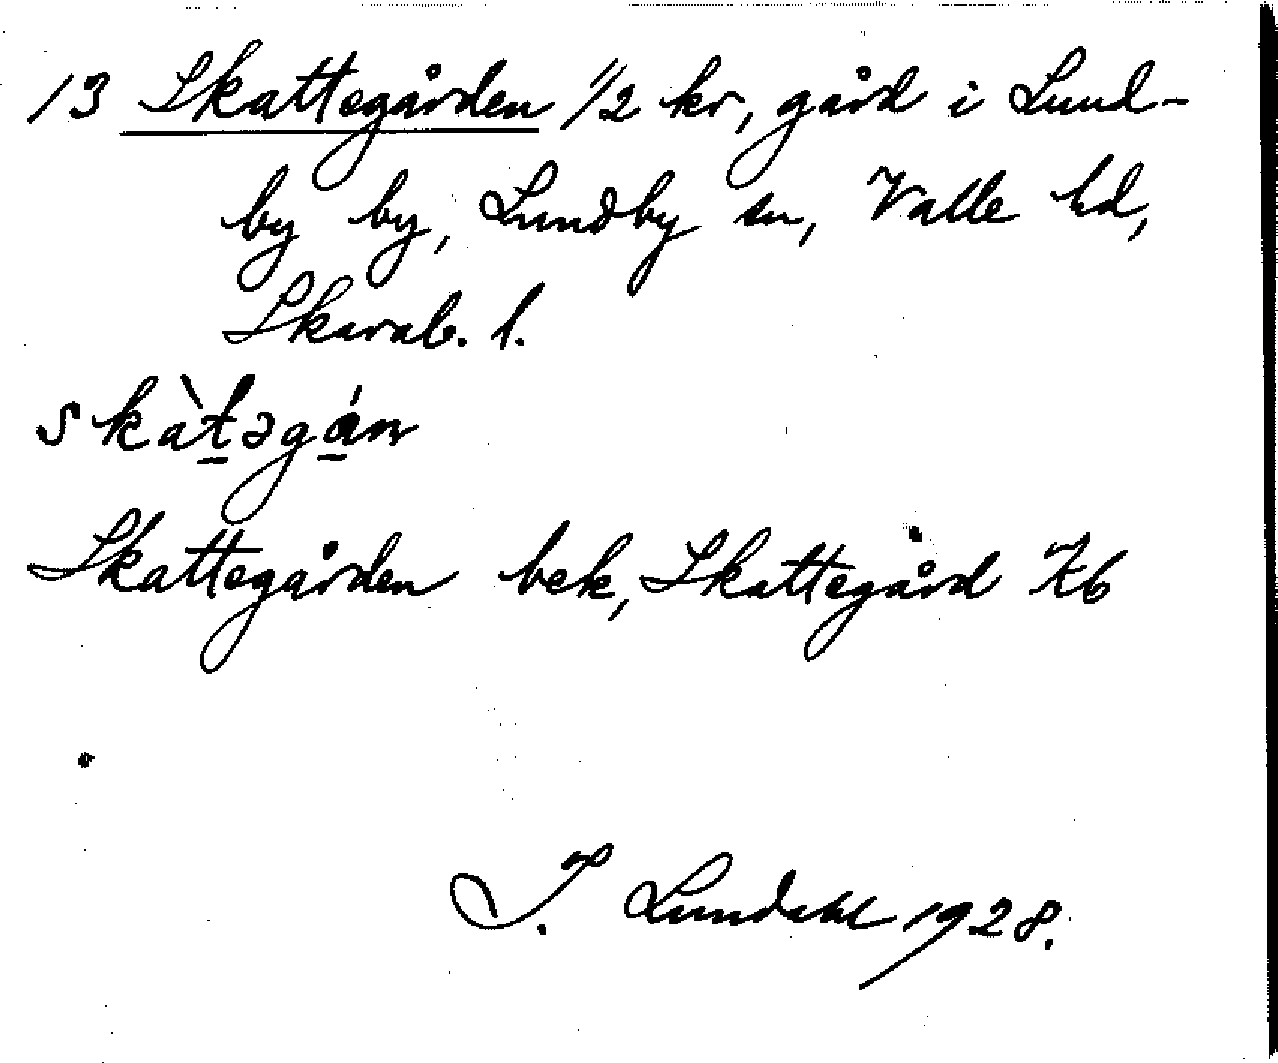 13 Skattegården 1/2 kr, gård i Lund-
by by, Lundby sn, Valle hd,
Skarab. l.
skàtəgán
Skattegården bek, Skattegård Kb
I. Lundahl 1928.